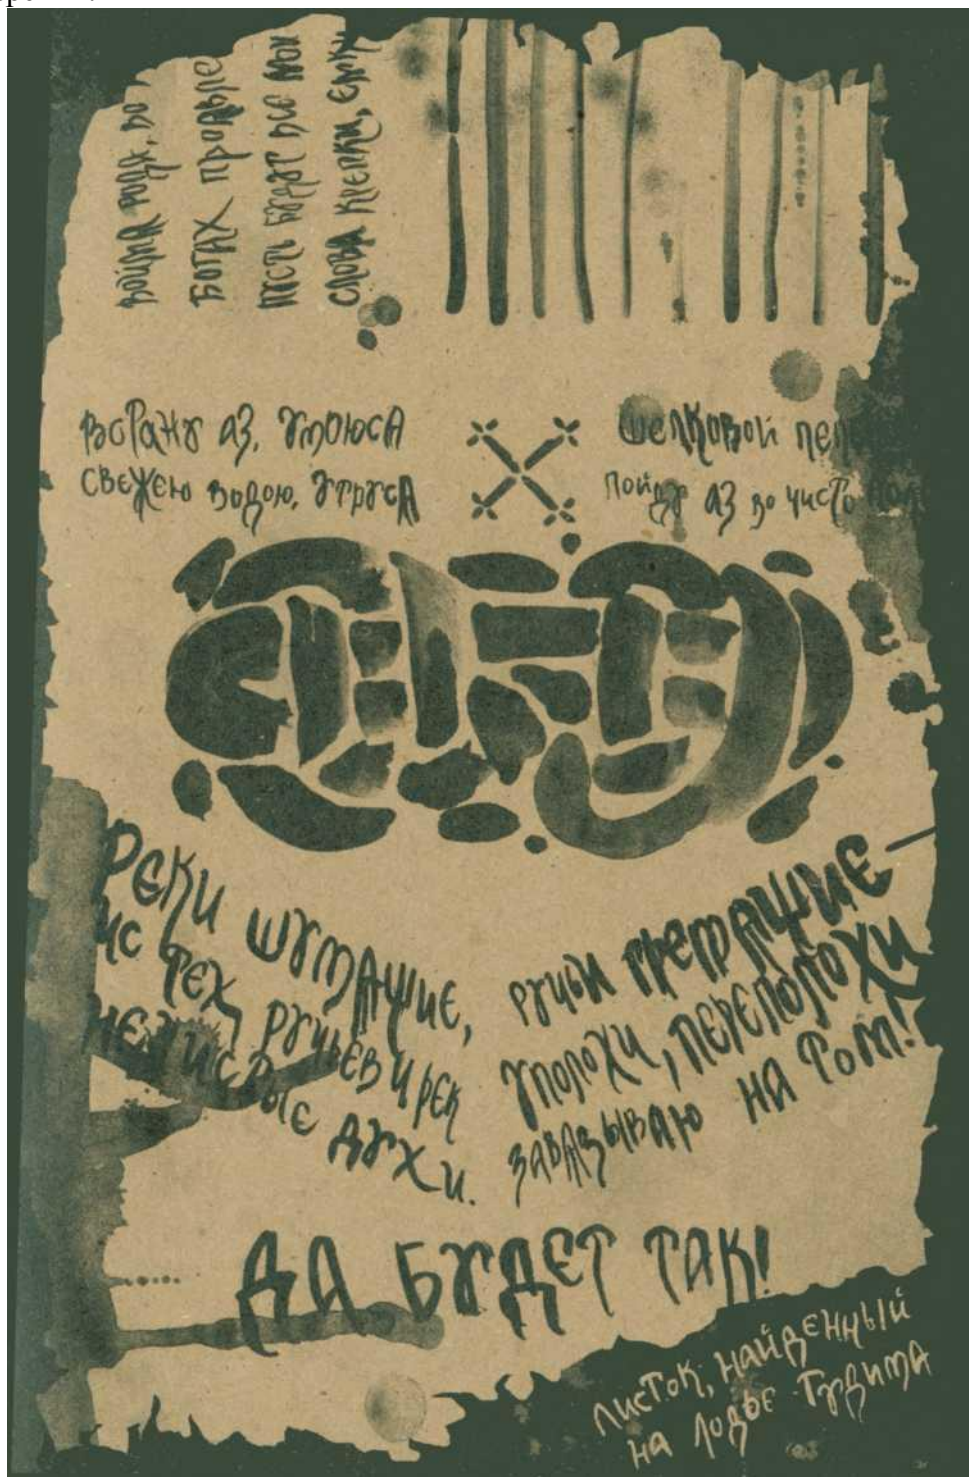 войма рода, во
богах продвле
пусть будут все мои
слова крепки, елок
встану аз, умоюса
свежею водою, утруса
шелковой пеле
пойду аз во чисто пол
Реки шумящие,
ис тех ручьев и рек
нечистые духи.
ручьи гремящие —
уполохи, переполохи
завязываю на том!
Да будет так!
Листок, найденный
на лодье Тудима